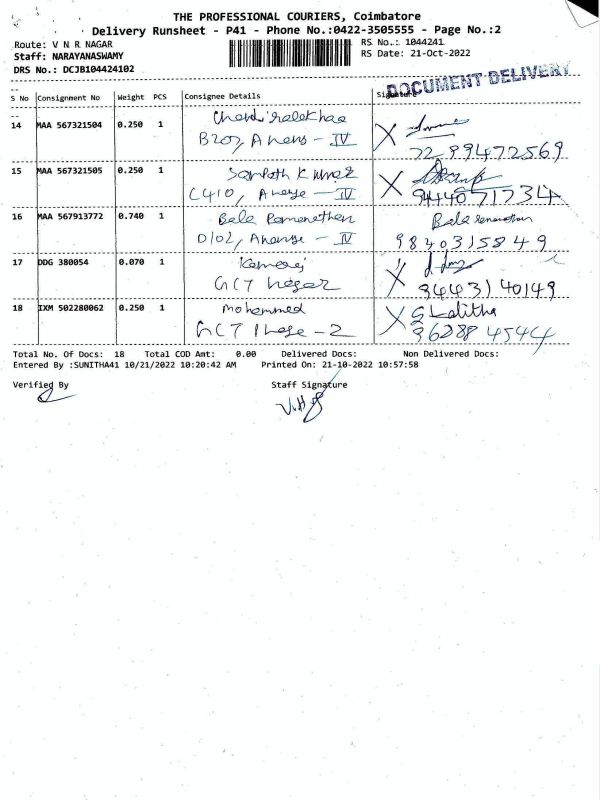 THE PROFESSIONAL COURIERS, Coimbatore
Delivery Runsheet - P41 - Phone No.:0422-3505555 - Page No.:2
Route: V N R NAGAR
RS No.: 1044241
Staff: NARAYANASWAMY
RS Date: 21-Oct-2022
DRS No.: DCJB104424102
DOCUMENT DELIVERY
S No Consignment No Weight PCS Consignee Details Signature
14 MAA 567321504 0.250 1
B207, IV
72 99472569
15 MAA 567321505 0.250 1 Sampath Kumar
C410, IV
9444071734
16 MAA 567913772 0.740 1 Bala Ramanathan
D102, IV
9840315849
17 DDG 380054 0.070 1 Kamaraj
GCT Nagar
9444314 0149
18 IXM 502280062 0.250 1 Mohammed G Lalitha
GCT Phase - 2
Total No. Of Docs: 18 Total COD Amt: 0.00 Delivered Docs: Non Delivered Docs:
Entered By :SUNITHA41 10/21/2022 10:20:42 AM Printed On: 21-10-2022 10:57:58
Verified By Staff Signature